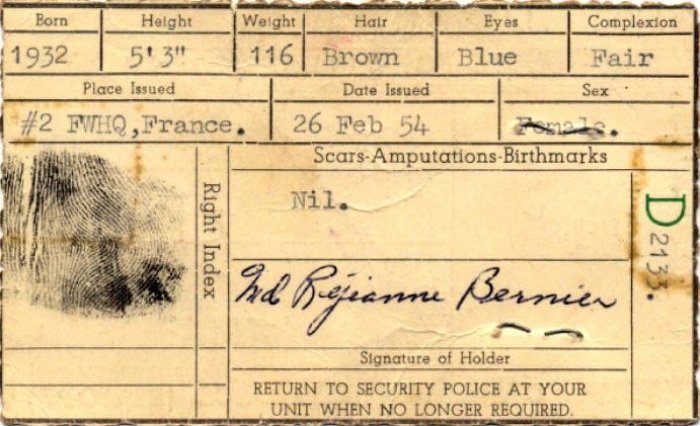 Born Height Weight Hair Eyes Complexion
1932 5'3" 116 Brown Blue Fair
Place Issued Date Issued Sex
#2 FWHQ,France. 26 Feb 54 Female.
Scars-Amputations-Birthmarks
Nil.
Right Index
D 2133.
Réjianne Bernier
Signature of Holder
RETURN TO SECURITY POLICE AT YOUR
UNIT WHEN NO LONGER REQUIRED.